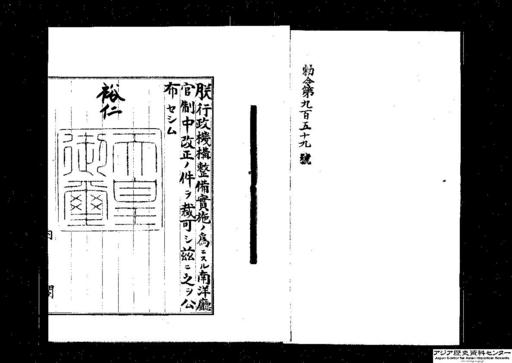 勅令第九百五十九號
朕行政機構整備實施ノ爲ニスル南洋廳
官制中改正ノ件ヲ裁可シ茲ニ之ヲ公
布セシム
裕仁
天皇
御璽
内閣
アジア歴史資料センター
Japan Center for Asian Historical Records